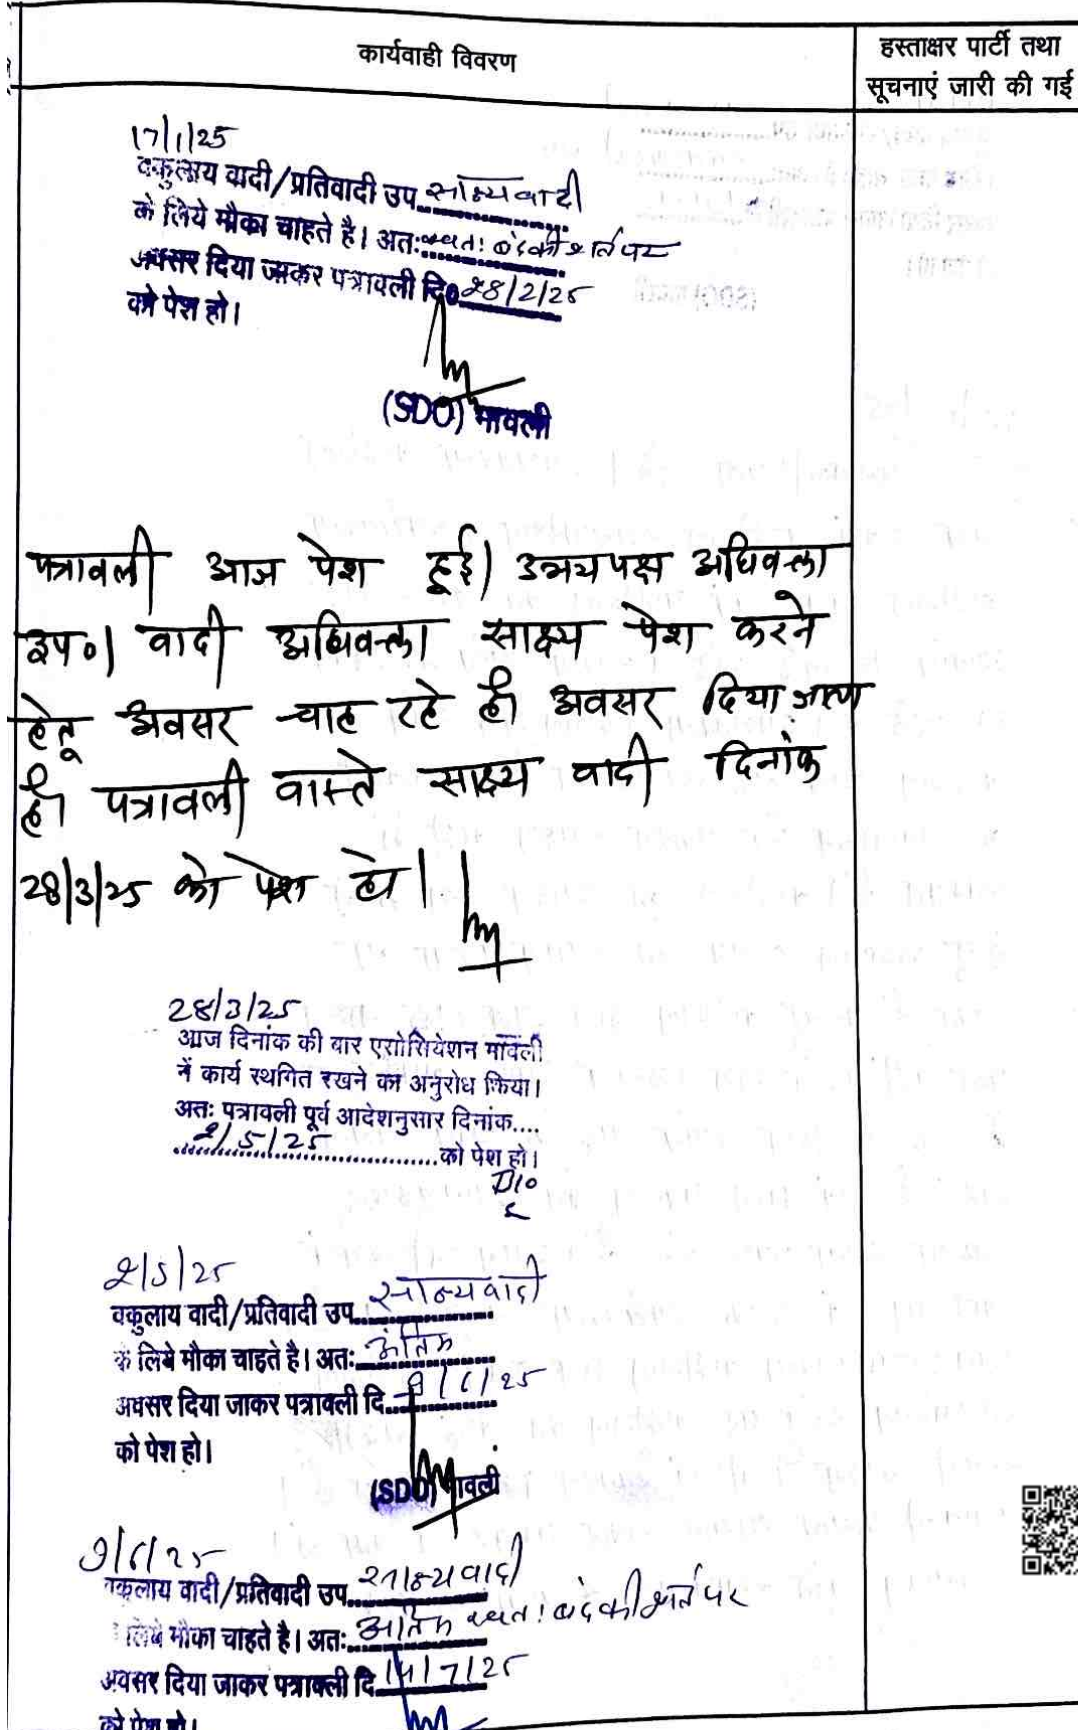 कार्यवाही विवरण
हस्ताक्षर पार्टी तथा
सूचनाएं जारी की गई
17/1/25
वकुलाय वादी/प्रतिवादी उप. साक्ष्य वादी
के लिये मौका चाहते है। अतः स्वतः बंद की शर्त पर
अवसर दिया जाकर पत्रावली दि० 28/2/25
को पेश हो।
(SDO) मावली
पत्रावली आज पेश हुई। उभयपक्ष अधिवक्ता
उप०। वादी अधिवक्ता साक्ष्य पेश करने
हेतू अवसर चाह रहे है। अवसर दिया जाता
है। पत्रावली वास्ते साक्ष्य वादी दिनांक
28/3/25 को पेश हो।
28/3/25
आज दिनांक की बार एसोसियेशन मावली
नें कार्य स्थगित रखने का अनुरोध किया।
अतः पत्रावली पूर्व आदेशनुसार दिनांक....
2/5/25 को पेश हो।
2/5/25
वकुलाय वादी/प्रतिवादी उप. साक्ष्य वादी
के लिये मौका चाहते है। अतः अंतिम
अवसर दिया जाकर पत्रावली दि. 9/6/25
को पेश हो।
(SDO) मावली
9/6/25
वकुलाय वादी/प्रतिवादी उप. साक्ष्य वादी
लिये मौका चाहते है। अतः अंतिम स्वतः बंद की शर्त पर
अवसर दिया जाकर पत्रावली दि. 14/7/25
को पेश हो।